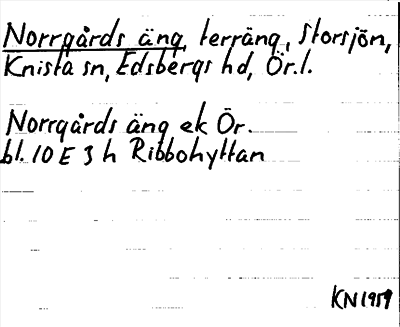 Norrgårds äng, terräng, Storsjön,
Knista sn, Edsbergs hd, Ör.l.
Norrgårds äng ek Ör.
bl. 10 E 3 h Ribbohyttan
KN 1959